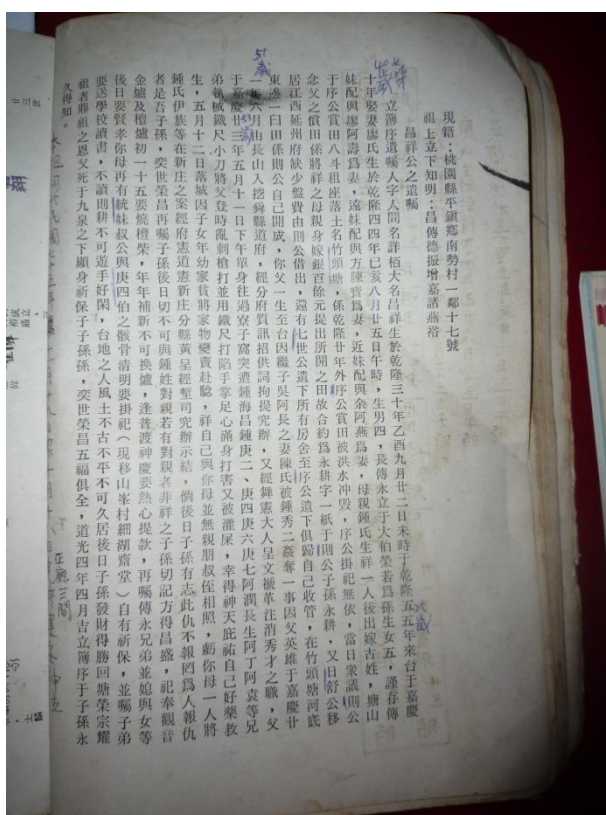 現籍：桃園縣平鎮鄉南勢村一鄰十七號
祖上立下知明：昌傳德振增嘉諸燕裕
昌祥公之遺囑
立簿序遺囑人字人間名詳栢大名昌祥生於乾隆三十年乙酉九月廿二日未時于乾隆五五年來台于嘉慶
十年娶妻廖氏生於乾隆四四年已亥八月廿五日午時，生男四，長傳永立于大伯榮若爲孫生女五，謹存傳
妹配與廖阿壽爲妻，遠妹配與方陳寶爲妻，近妹配與余阿燕爲妻，母親鍾氏生祥一人後出嫁古姓，塘山
于序公賞田八斗租座落土名竹頭塘，係乾隆廿年外序公賞田被洪水沖毀，序公掛祀無依，當日衆議則公
念父之償田係將祥之母親身嫁銀百餘元提出所開之田故合約爲永耕字一紙于則公子孫永耕．又日舒公移
居江西延州府缺少盤費由則公借出，還有七世公遺下所有房舍至序公遺下俱歸自己收管，在竹頭塘河底
東邊一曰田係則公自己開成，你父一生至台因繼子吳阿長之妻陳氏被鍾秀二姦奪一事因父英維于嘉慶廿
一年六月由長山人挖舜縣道府，經分府質訊招供詞拘提究辦，又經舞憲大人呈文褫革注消秀才之職，父
于嘉慶廿三年五月十一日下午單身往過寮子窩突遭鍾海昌鍾庚二、庚四庚六庚七阿潤長生阿丁阿袁等兄
弟執械鐵尺小刀將父登時亂刺槍打並用鐵尺打陷手掌足心滿身打害又被灌尿，幸得神天庇祐自己好藥救
生，五月十二日落城因子女年幼家貧將家物變賣赴驗，祥自己與你母並無親朋叔侄相照，虧你母一人將
鍾氏伊族等在新庄之案經府憲道憲新庄分縣黃呈經塹司究辦示結，倘後日子孫有志此仇不報罔爲人報仇
者是吾子孫，奕世榮昌再囑子孫後日切不可與鍾姓對親若有對親者非祥之子孫切記方得昌盛，祀奉觀音
金爐及檀爐初一十五要燒檀柴，年年補新不可換爐，逢普渡神慶要熱心提款，再囑傳永兄弟並媳與女等
後日要賢孝你母再有統妹叔公與庚四伯之骸骨清明要掛祀（現移山峯村細湖齋堂）自有祈保，並囑子弟
要送學校讀書，不讀則耕不可遊手好閑，台地之人風土不古不平不可久居後日子孫發財得勝回塘榮宗耀
祖者耶祖之恩父死于九泉之下顯身祈保子子孫孫，奕世榮昌五福俱全，道光四年四月吉立簿序于子孫永
久得知。
51歲